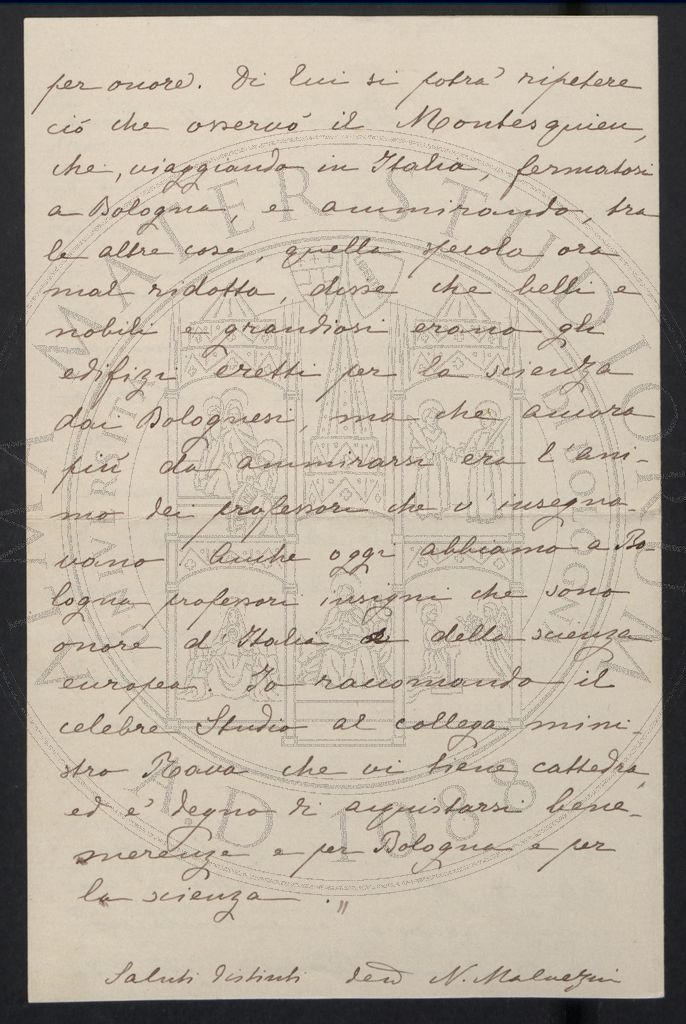 per onore. Di lui si potrà ripetere
ciò che osservò il Montesquieu,
che, viaggiando in Italia, fermatosi
a Bologna, e ammirando, tra
le altre cose, quella specola ora
mal ridotta, disse che belli e
nobili e grandiosi erano gli
edifizi eretti per la scienza
dai Bolognesi, ma che ancora
più da ammirarsi era l'ani-
mo dei professori che v'insegna-
vano. Anche oggi abbiamo a Bo-
logna professori insigni che sono
onore d'Italia e della scienza
europea. Io raccomando il
celebre Studio al collega mini-
stro Rava che vi tiene cattedra,
ed è degno di acquistarsi bene-
merenze e per Bologna e per
la scienza."
Saluti distinti N. Malvezzi
ALMA MATER STUDIORUM
A.D. 1088